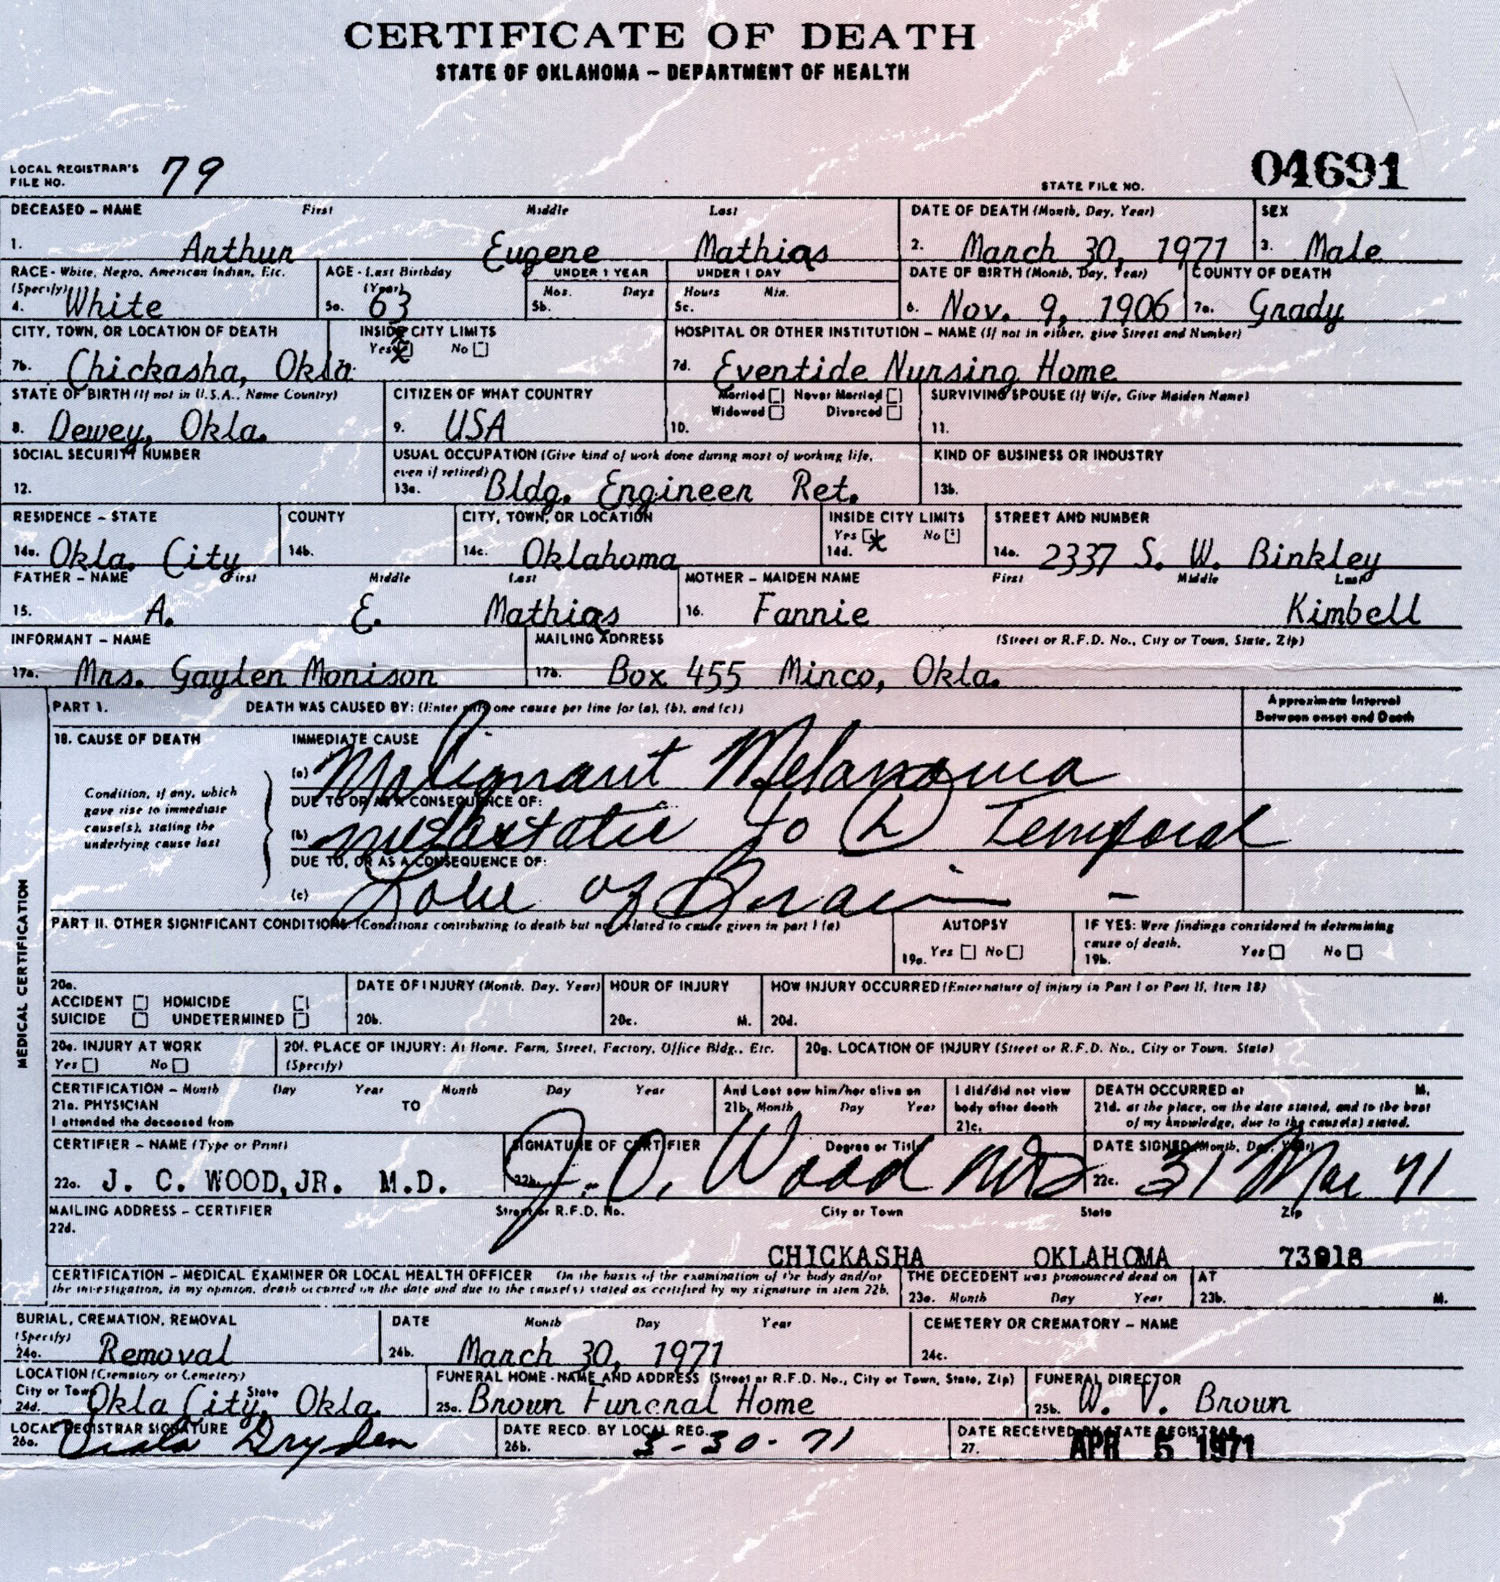 CERTIFICATE OF DEATH
STATE OF OKLAHOMA – DEPARTMENT OF HEALTH
LOCAL REGISTRAR'S FILE NO. 79
STATE FILE NO. 04691
DECEASED – NAME First Middle Last
1. Arthur Eugene Mathias
DATE OF DEATH (Month, Day, Year)
2. March 30, 1971
SEX
3. Male
RACE - White, Negro, American Indian, Etc. (Specify)
4. White
AGE - Last Birthday (Year)
5a. 63
UNDER 1 YEAR
Mos. Days
5b.
UNDER 1 DAY
Hours Min.
5c.
DATE OF BIRTH (Month, Day, Year)
6. Nov. 9, 1906
COUNTY OF DEATH
7a. Grady
CITY, TOWN, OR LOCATION OF DEATH
7b. Chickasha, Okla.
INSIDE CITY LIMITS
Yes No
HOSPITAL OR OTHER INSTITUTION – NAME (If not in either, give Street and Number)
7d. Eventide Nursing Home
STATE OF BIRTH (If not in U.S.A., Name Country)
8. Dewey, Okla.
CITIZEN OF WHAT COUNTRY
9. USA
Married Never Married
Widowed Divorced
10.
SURVIVING SPOUSE (If Wife, Give Maiden Name)
11.
SOCIAL SECURITY NUMBER
12.
USUAL OCCUPATION (Give kind of work done during most of working life, even if retired)
13a. Bldg. Engineer Ret.
KIND OF BUSINESS OR INDUSTRY
13b.
RESIDENCE – STATE
14a. Okla. City
COUNTY
14b.
CITY, TOWN, OR LOCATION
14c. Oklahoma
INSIDE CITY LIMITS
Yes No
14d.
STREET AND NUMBER
14e. 2337 S. W. Binkley
FATHER – NAME First Middle Last
15. A. E. Mathias
MOTHER – MAIDEN NAME First Middle Last
16. Fannie Kimbell
INFORMANT – NAME
17a. Mrs. Gaylen Monison
MAILING ADDRESS (Street or R.F.D. No., City or Town, State, Zip)
17b. Box 455 Minco, Okla.
MEDICAL CERTIFICATION
PART I. DEATH WAS CAUSED BY: (Enter only one cause per line for (a), (b), and (c))
Approximate Interval Between onset and Death
18. CAUSE OF DEATH
Condition, if any, which gave rise to immediate cause(s), stating the underlying cause last
IMMEDIATE CAUSE
(a) Malignant Melanoma
DUE TO OR AS A CONSEQUENCE OF:
(b) metastatic to (L) Temporal
DUE TO, OR AS A CONSEQUENCE OF:
(c) Lobe of Brain –
PART II. OTHER SIGNIFICANT CONDITIONS: (Conditions contributing to death but not related to cause given in part I (a)
AUTOPSY
19a. Yes No
IF YES: Were findings considered in determining cause of death. Yes No
19b.
20a.
ACCIDENT HOMICIDE
SUICIDE UNDETERMINED
DATE OF INJURY (Month, Day, Year)
20b.
HOUR OF INJURY
20c. M.
HOW INJURY OCCURRED (Enter nature of injury in Part I or Part II, Item 18)
20d.
20e. INJURY AT WORK
Yes No
20f. PLACE OF INJURY: At Home, Farm, Street, Factory, Office Bldg., Etc. (Specify)
20g. LOCATION OF INJURY (Street or R.F.D. No., City or Town, State)
CERTIFICATION – Month Day Year Month Day Year
21a. PHYSICIAN TO
I attended the deceased from
And Last saw him/her alive on
21b. Month Day Year
I did/did not view body after death
21c.
DEATH OCCURRED at M.
21d. at the place, on the date stated, and to the best of my knowledge, due to the cause(s) stated.
CERTIFIER – NAME (Type or Print)
22a. J. C. WOOD, JR. M.D.
SIGNATURE OF CERTIFIER Degree or Title
22b. J. C. Wood MD
DATE SIGNED (Month, Day, Year)
22c. 31 Mar 71
MAILING ADDRESS – CERTIFIER Street or R.F.D. No. City or Town State Zip
22d.
CHICKASHA OKLAHOMA 73018
CERTIFICATION – MEDICAL EXAMINER OR LOCAL HEALTH OFFICER (On the basis of the examination of the body and/or
the investigation, in my opinion, death occurred on the date and due to the cause(s) stated as certified by my signature in item 22b.
THE DECEDENT was pronounced dead on
23a. Month Day Year
AT
23b. M.
BURIAL, CREMATION, REMOVAL (Specify)
24a. Removal
DATE Month Day Year
24b. March 30, 1971
CEMETERY OR CREMATORY – NAME
24c.
LOCATION (Crematory or Cemetery)
City or Town State
24d. Okla City, Okla.
FUNERAL HOME - NAME AND ADDRESS (Street or R.F.D. No., City or Town, State, Zip)
25a. Brown Funeral Home
FUNERAL DIRECTOR
25b. W. V. Brown
LOCAL REGISTRAR SIGNATURE
26a. Viola Dryden
DATE RECD. BY LOCAL REG.
26b. 3-30-71
DATE RECEIVED BY STATE REGISTRAR
27. APR 5 1971